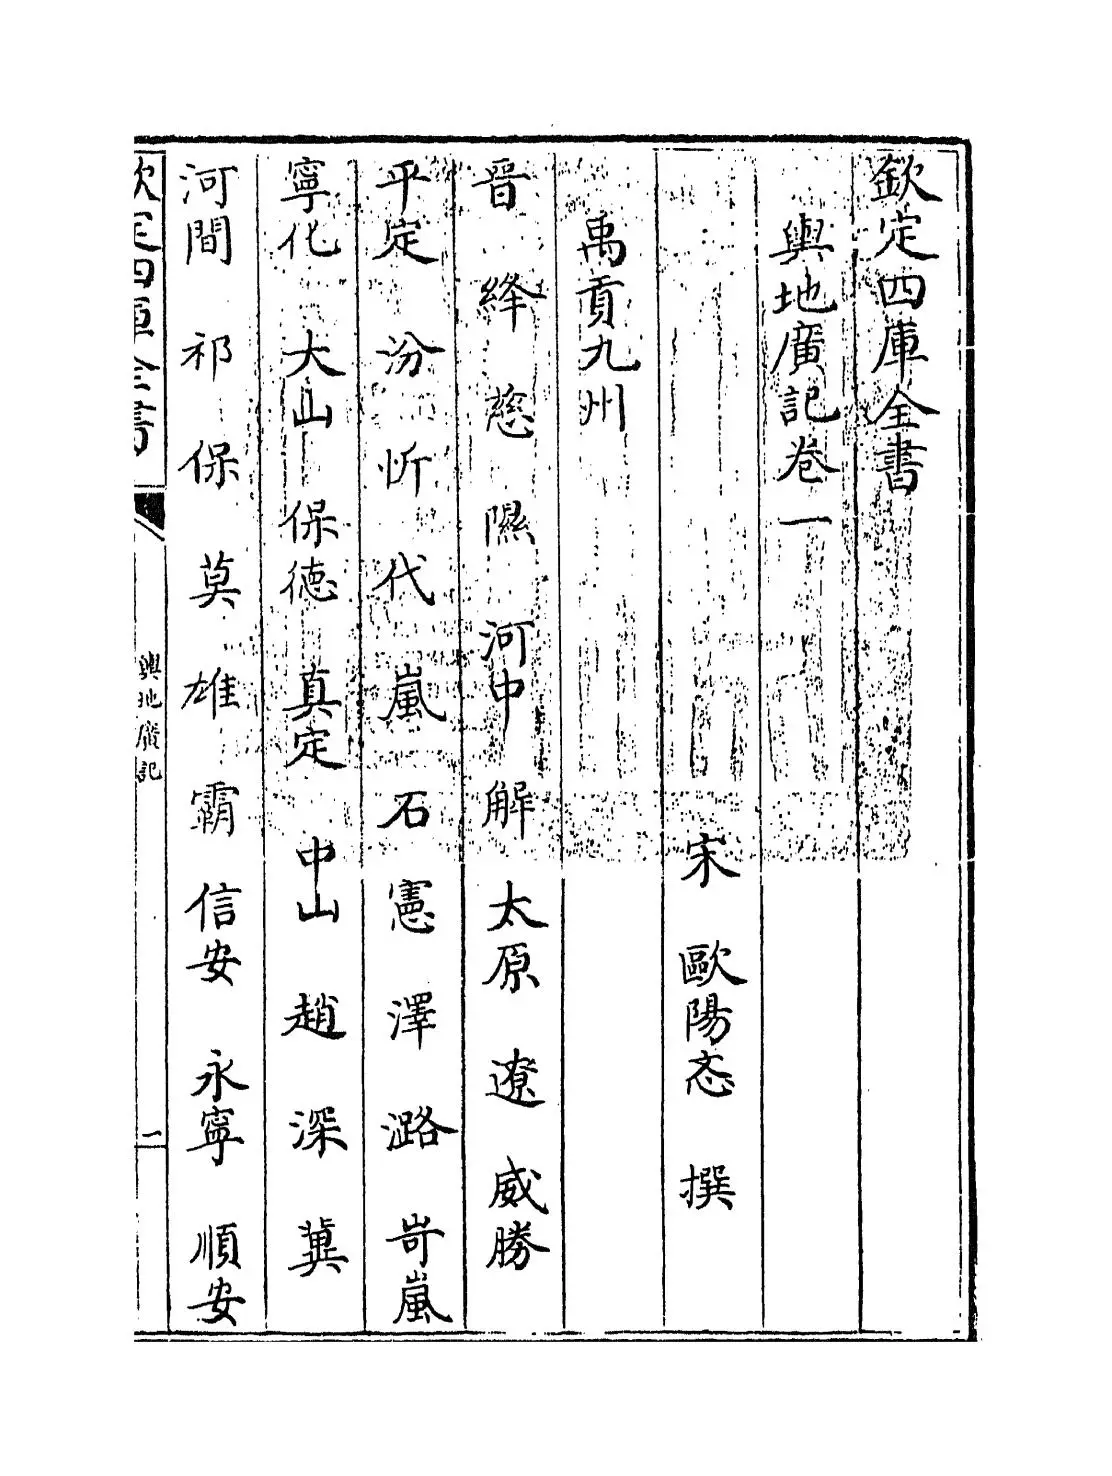 欽定四庫全書
輿地廣記卷一
宋　歐陽忞　撰
禹貢九州
晉　絳　慈　隰　河中　解　太原　遼　威勝
平定　汾　忻　代　嵐　石　憲　澤　潞　岢嵐
寧化　大山　保德　真定　中山　趙　深　冀
河間　祁　保　莫　雄　霸　信安　永寧　順安
欽定四庫全書
輿地廣記
一